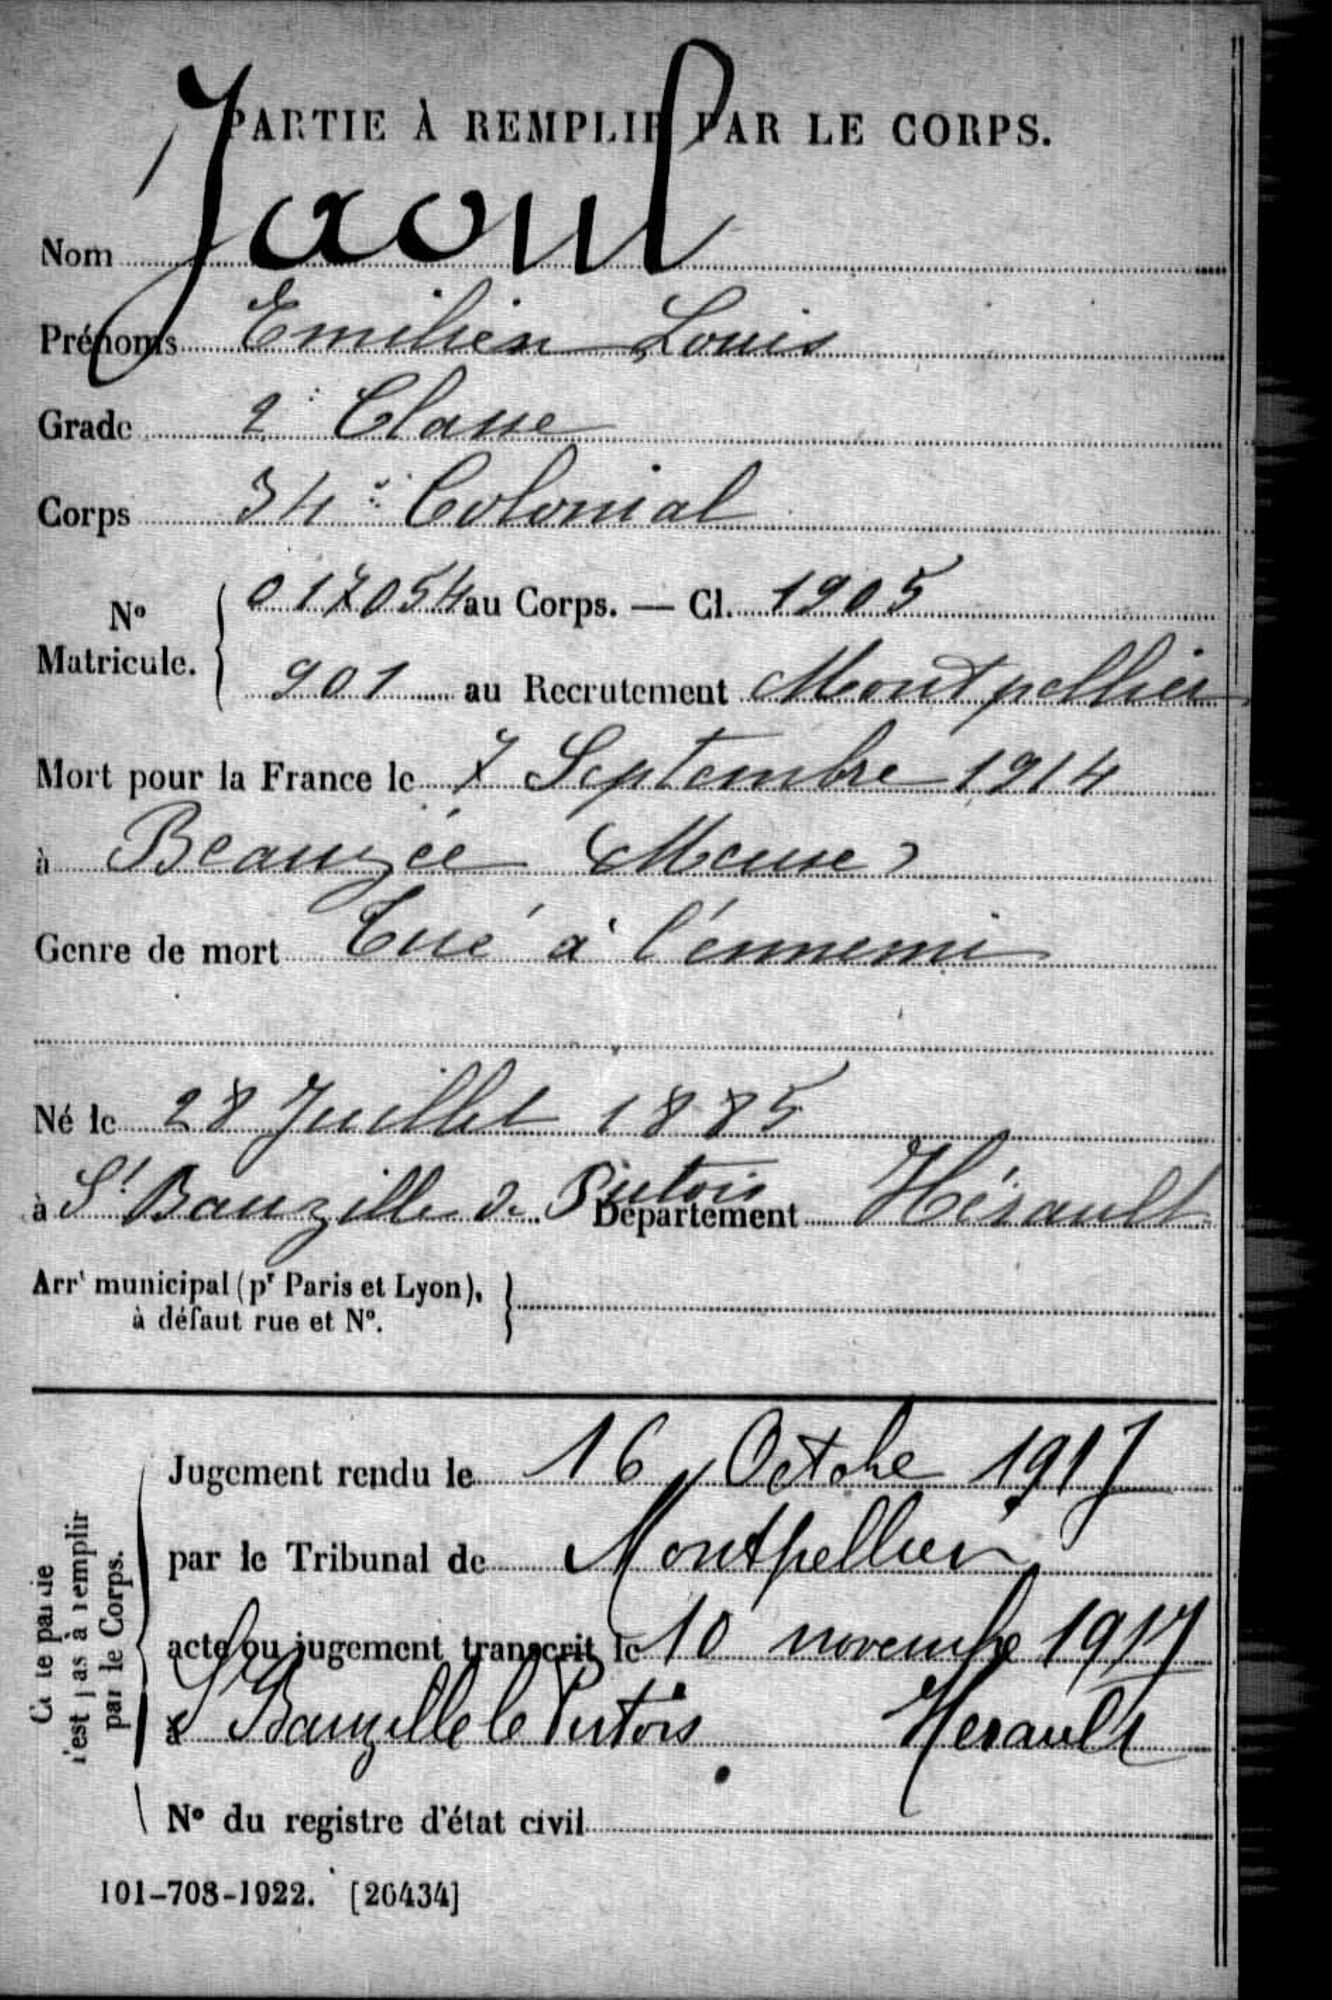 PARTIE À REMPLIR PAR LE CORPS.
Nom Jaoul
Prénoms Emilien Louis
Grade 2e Classe
Corps 34e Colonial
No Matricule. { 017054 au Corps. — Cl. 1905
901 au Recrutement Montpellier
Mort pour la France le 7 Septembre 1914
à Beauzée (Meuse)
Genre de mort Tué à l'ennemi
Né le 28 Juillet 1885
à St Bauzille de Putois Département Hérault
Arrt municipal (pr Paris et Lyon), }
à défaut rue et No.
Jugement rendu le 16 Octobre 1917
par le Tribunal de Montpellier
acte ou jugement transcrit le 10 novembre 1917
à St Bauzille le Putois Herault
No du registre d'état civil
Cette partie
n'est pas à remplir
par le Corps.
101-708-1922. [26434]